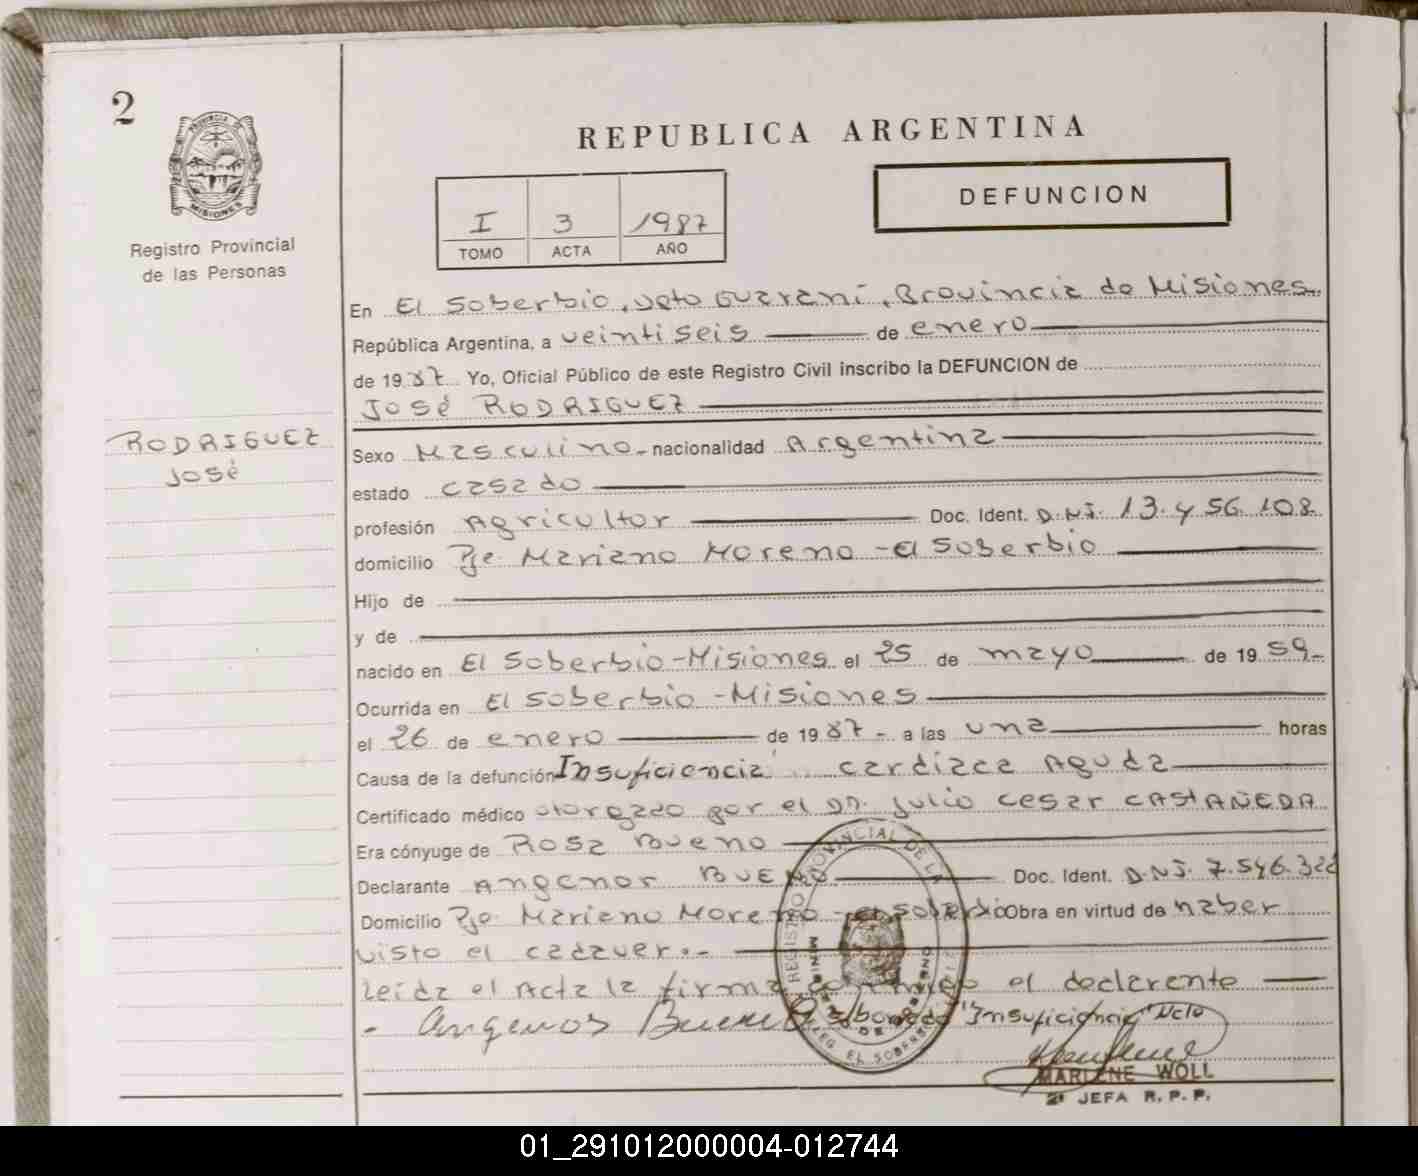 2
PROVINCIA DE
MISIONES
Registro Provincial
de las Personas
REPUBLICA ARGENTINA
DEFUNCION
I 3 1987
TOMO ACTA AÑO
En El Soberbio, Dpto Guaraní, Provincia de Misiones
República Argentina, a veintiseis de enero
de 1987 Yo, Oficial Público de este Registro Civil inscribo la DEFUNCION de
José RODRIGUEZ
RODRIGUEZ
José
Sexo Masculino nacionalidad Argentina
estado casado
profesión Agricultor Doc. Ident. D.N.I. 13.456.108
domicilio Pje. Mariano Moreno - El Soberbio
Hijo de
y de
nacido en El Soberbio - Misiones el 25 de mayo de 1959-
Ocurrida en El Soberbio - Misiones
el 26 de enero de 1987- a las una horas
Causa de la defunción Insuficiencia cardiaca Aguda
Certificado médico otorgado por el Dr. Julio Cesar CASTAÑEDA
Era cónyuge de Rosa Bueno
Declarante Angenor BUENO Doc. Ident. D.N.I. 7.546.322
Domicilio Pje. Mariano Moreno - El Soberbio Obra en virtud de haber
visto el cadaver.-
Leída el Acta la firma conmigo el declarante
- Angenor Bueno "Insuficiencia" Vale
REGISTRO PROVINCIAL DE LA
EL SOBERBIO
MARLENE WOLL
JEFA R.P.P.
01_291012000004-012744